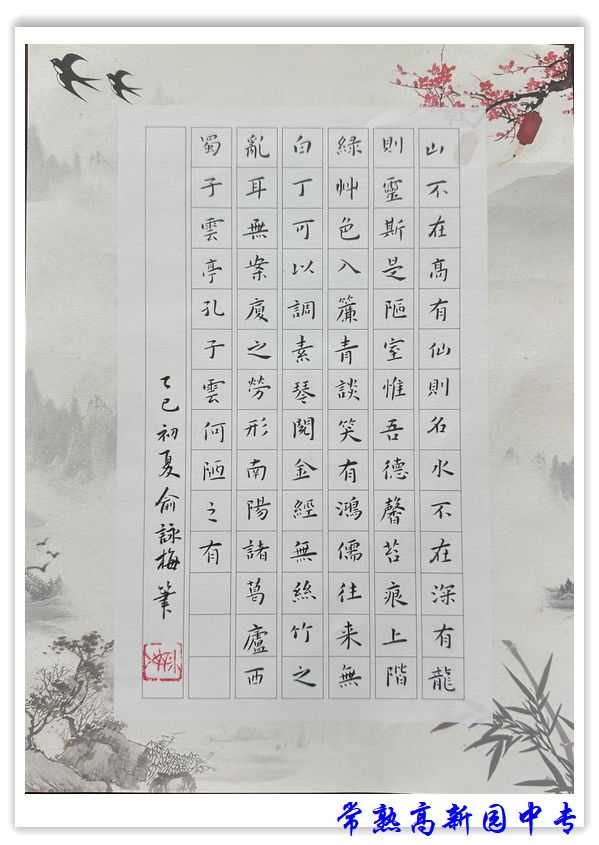 山不在高有仙則名水不在深有龍
則靈斯是陋室惟吾德馨苔痕上階
綠艸色入簾青談笑有鴻儒往来無
白丁可以調素琴閱金經無絲竹之
亂耳無案廈之勞形南陽諸葛廬西
蜀子雲亭孔子雲何陋之有
乙巳初夏俞詠梅筆
常熟高新园中专